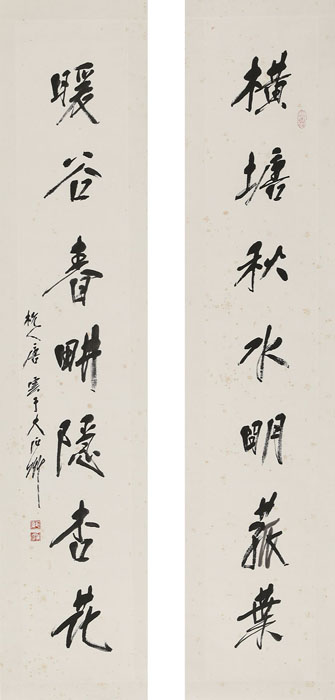 橫塘秋水明菰葉
暖谷春畊隱杏花
杭人唐雲于大石斋